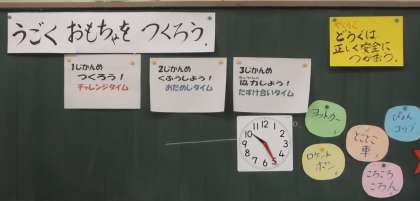 うごく おもちゃを つくろう。
やくそく
どうぐは
正しく安全に
つかおう。
1じかんめ
つくろう！
チャレンジタイム
2じかんめ
くふうしよう！
おためしタイム
3じかんめ
協力しよう！
たすけ合いタイム
12
1
2
3
4
5
6
7
8
9
10
11
ヨットカー
ぴょん
コップ
とことこ
車
ロケット
ポン
ころころ
ころん